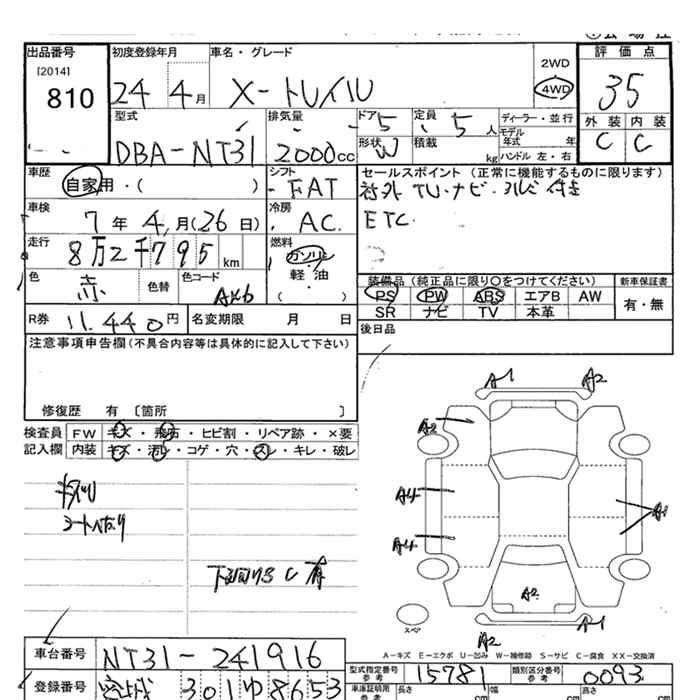 出品番号
[2014]
810
初度登録年月
24 4月
車名・グレード
X-トレイル
2WD
4WD
評価点
35
外装 内装
C C
型式
DBA-NT31
排気量
2000cc
ドア 5
形状 W
定員 5人
積載 kg
ディーラー・並行
モデル年式 年
ハンドル 左・右
車歴
自家用・( )
シフト
FAT
セールスポイント (正常に機能するものに限ります)
社外 TV・ナビ・
ETC.
車検
7年 4月(26日)
冷房
AC.
走行
8万2千795km
燃料
ガソリン
軽・油
( )
色
赤
色替
色コード
AX6
装備品(純正品に限り○をつけてください)
PS PW ABS エアB AW
SR ナビ TV 本革
新車保証書
有・無
R券 11.440円
名変期限 月 日
後日品
注意事項申告欄(不具合内容等は具体的に記入して下さい)
修復歴 有 〔箇所 〕
検査員 FW キズ・飛石・ヒビ割・リペア跡・×要
記入欄 内装 キズ・汚レ・コゲ・穴・スレ・キレ・破レ
A1 A2
A2
A4
A4
A1
A2
A1
A2
スペア
A-キズ E-エクボ U-凹み W-補修跡 S-サビ C-腐食 XX-交換済
車台番号 NT31-241916
登録番号 301 ゆ 8653
型式指定番号 参考 15781
類別区分番号 参考 0093
車庫証明用 参考 長さ cm 幅 cm 高さ cm